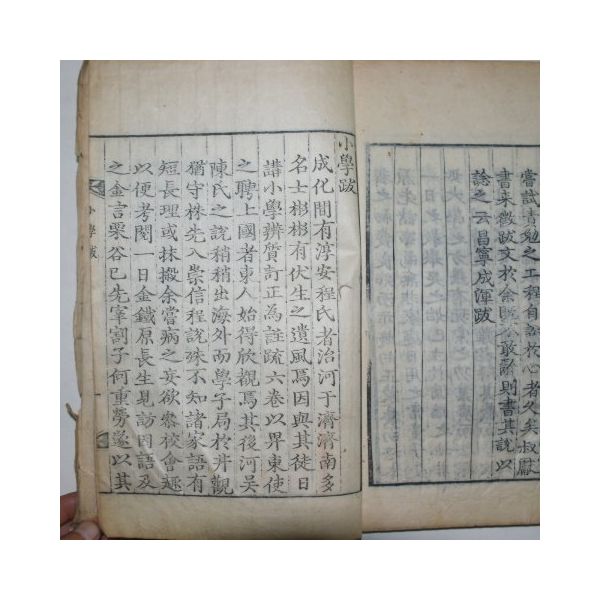 嘗試責勉之工程自認於心者久矣叔獻
書來徵跋文於余旣不敢辭則書其說以
諗之云昌寧成渾跋
小學跋
成化間有淳安程氏者治河于濟濟南多
名士彬彬有伏生之遺風焉因與其徒日
講小學辨質訂正為註疏六卷以畀東使
之聘上國者東人始得欣觀焉其後河吳
陳氏之說稍稍出海外而學子局於井觀
猶守株先入崇信程說殊不知諸家語有
短長理或抹摋余嘗病之妄欲參校會趣
以便考閱一日金鐵原長生見訪因語及
之金言栗谷已先宰割子何重勞遂以其
小學跋